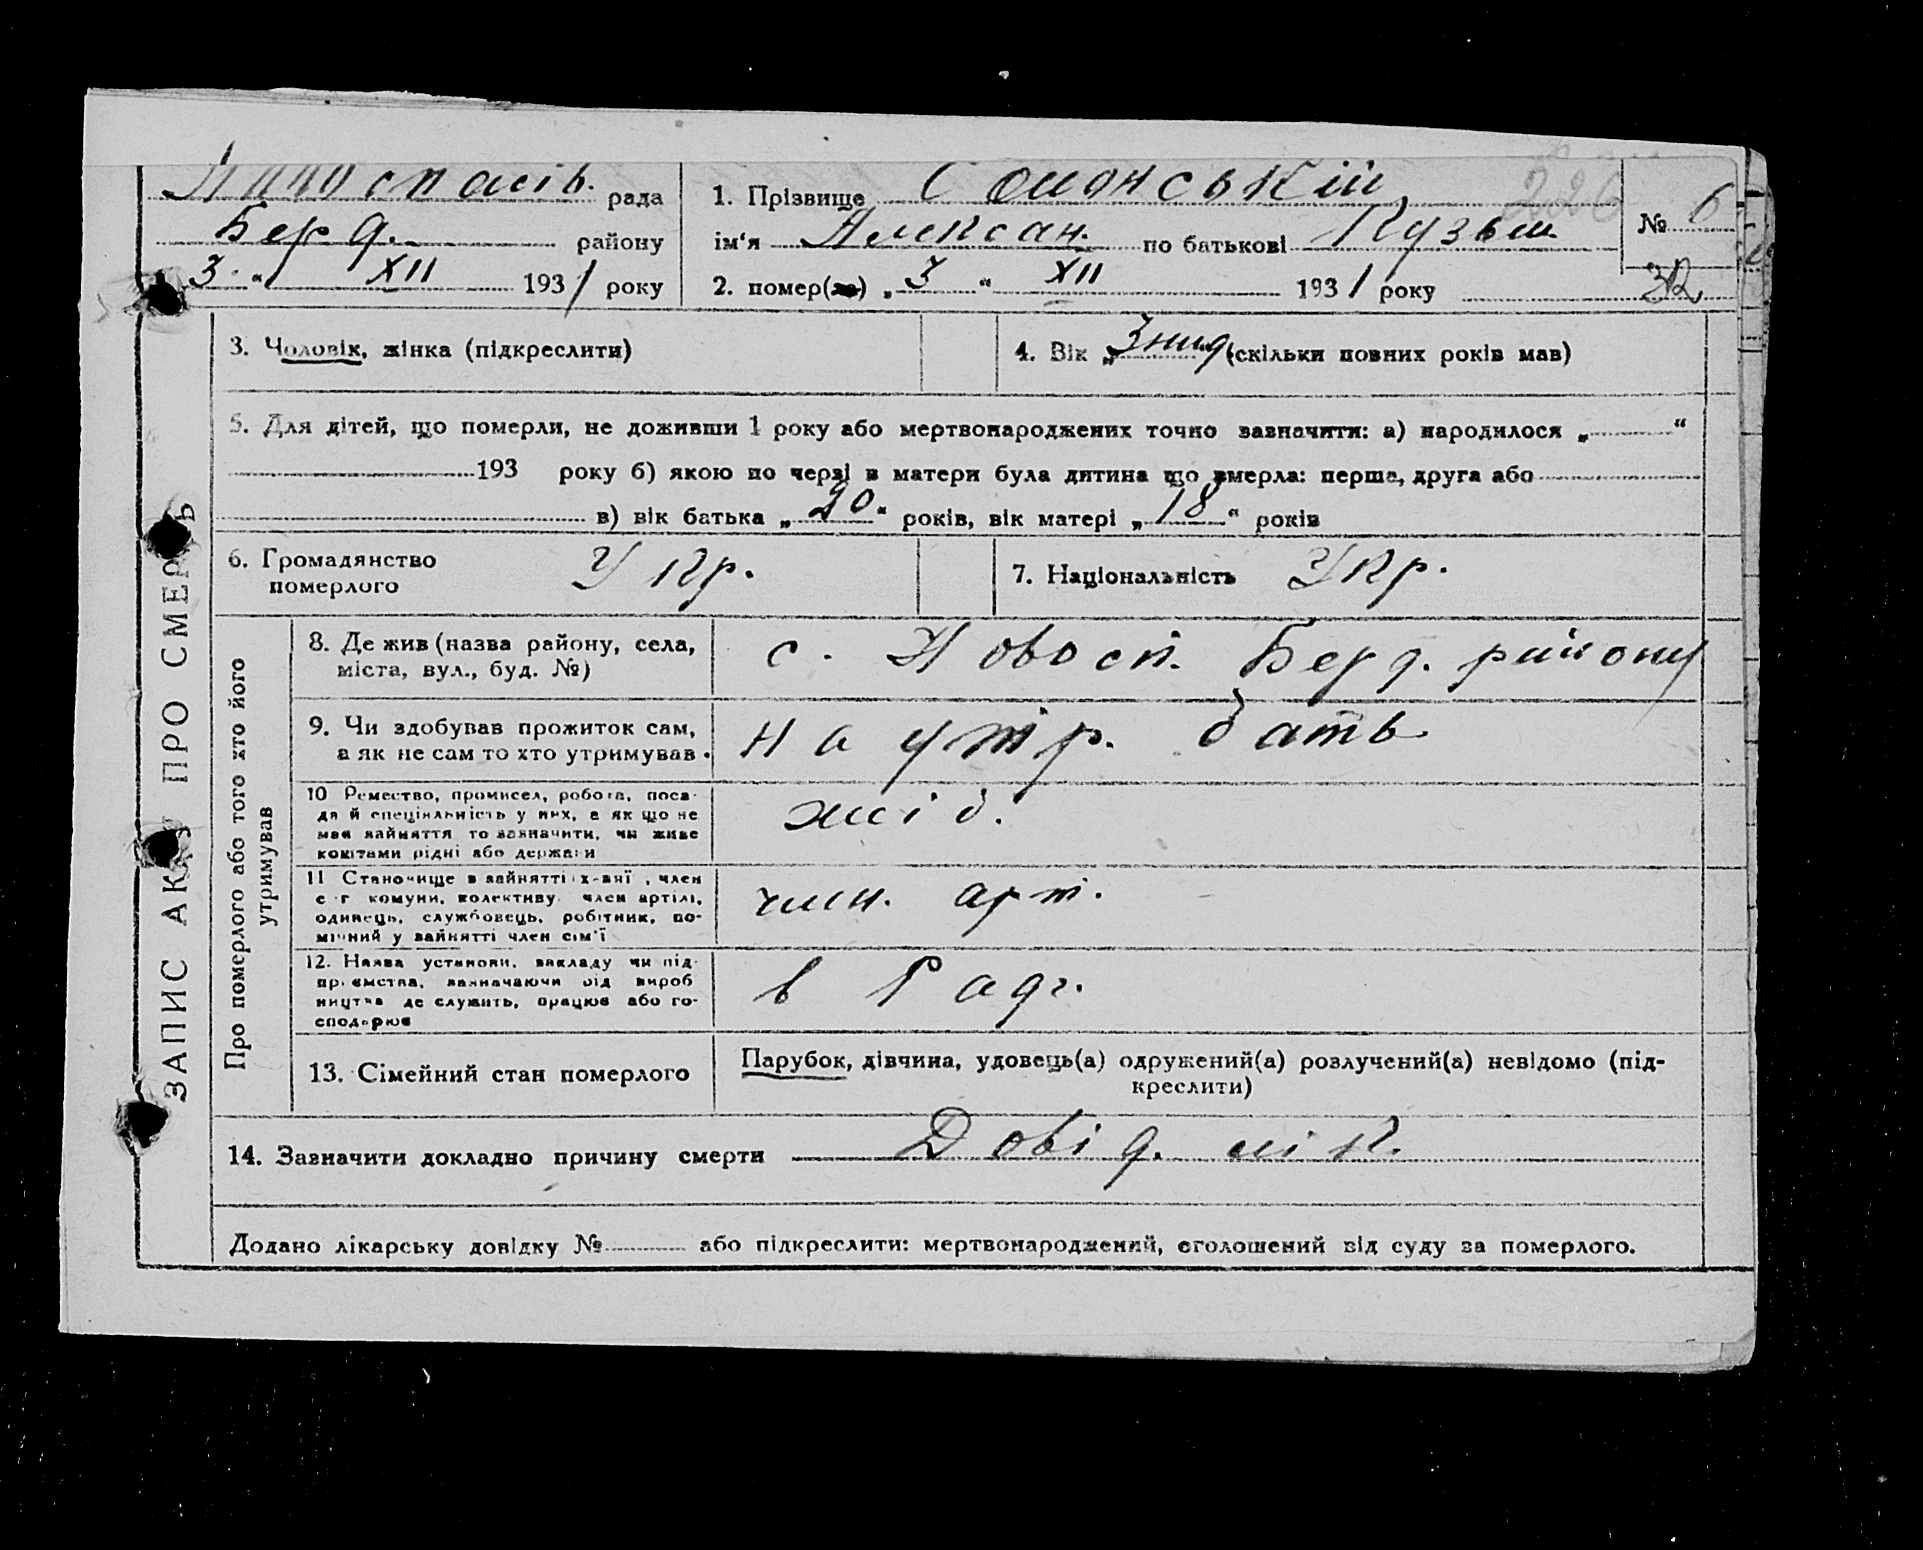 рада
Берд. району
3 " XII 1931 року
1. Прізвище
226
№ 6
ім'я Алексан. по батькові Кузьм
2. помер(ла) „ 3 " XII 1931 року
32
ЗАПИС АКТУ ПРО СМЕРТЬ
3. Чоловік, жінка (підкреслити)
4. Вік „ (скільки повних років мав)
5. Для дітей, що померли, не доживши 1 року або мертвонароджених точно зазначити: а) народилося „ "
193 року б) якою по черзі в матери була дитина що вмерла: перша, друга або
в) вік батька „ 20 " років, вік матері „ 18 " років
6. Громадянство
померлого
Укр.
7. Національність Укр.
Про померлого або того хто його
утримував
8. Де жив (назва району, села,
міста, вул., буд. №)
с. Новосп. Берд. району
9. Чи здобував прожиток сам,
а як не сам то хто утримував.
на утр. бать
10 Ремество, промисел, робота, поса-
да й спеціяльність у них, а як що не
мав зайняття то зазначити, чи живе
коштами рідні або держави
хліб.
11 Становище в зайнятті х-вні , член
с-г комуни, колективу член артілі,
одинець, службовець, робітник, по-
мічний у зайнятті член сім'ї
член. арт.
12. Назва установи, закладу чи під-
приємства, зазначаючи від вироб
ництва де служить, працює або го-
сподарює
в Радг.
13. Сімейний стан померлого
Парубок, дівчина, удовець(а) одружений(а) розлучений(а) невідомо (під-
креслити)
14. Зазначити докладно причину смерти Довід. лік.
Додано лікарську довідку № або підкреслити: мертвонароджений, оголошений від суду за померлого.